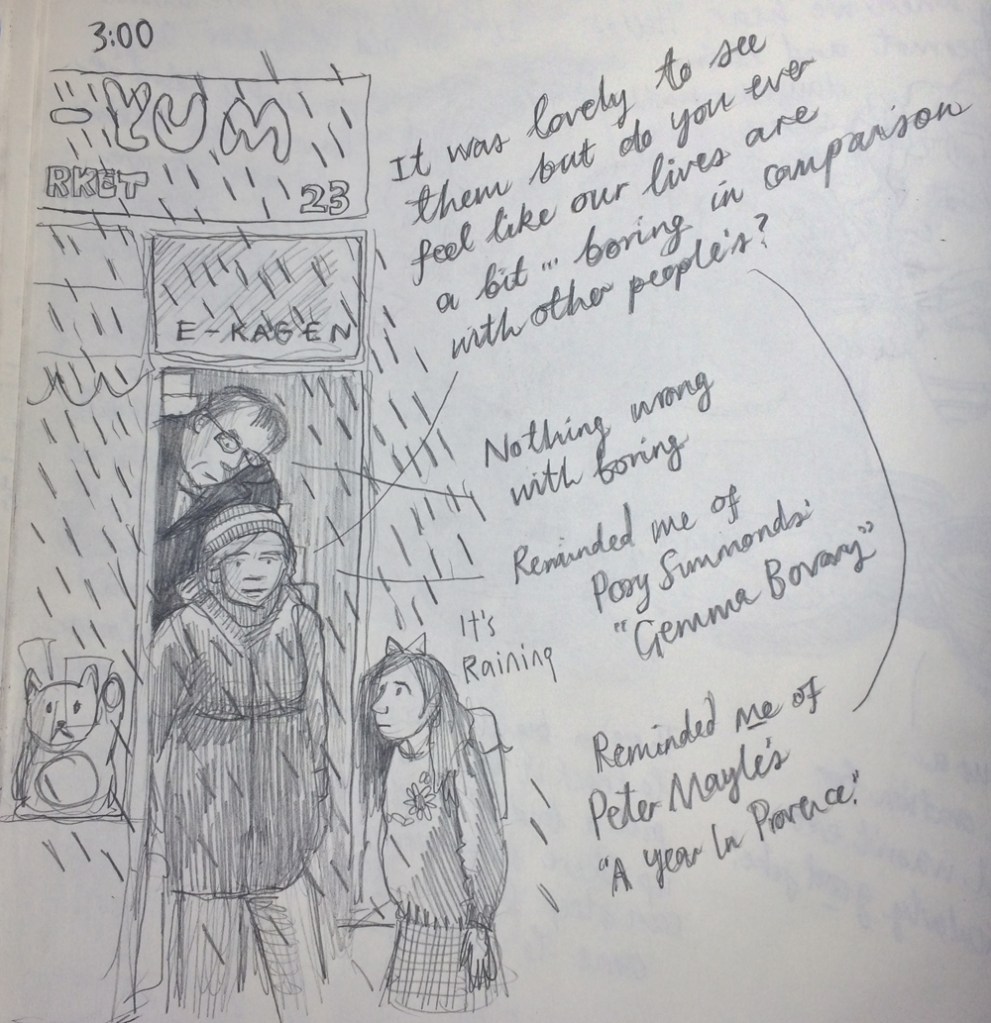 3:00
-YUM
RKET
23
E-KAGEN
It was lovely to see
them but do you ever
feel like our lives are
a bit ... boring in comparison
with other people's?
Nothing wrong
with boring
Reminded me of
Posy Simmonds'
"Gemma Bovary"
It's
Raining
Reminded me of
Peter Mayle's
"A Year In Provence."